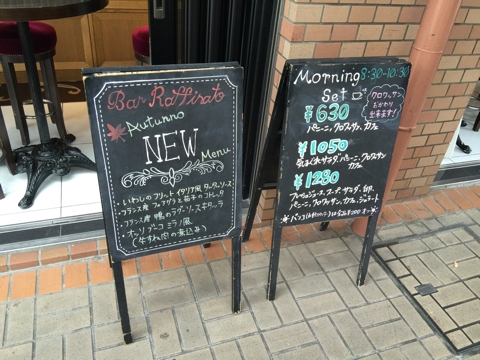 Bar Raffinato
Autunno
NEW
Menu
・いわしのフリット イタリア風 タルタルソース
・フランス産
・フランス産 鴨のラグーソース
・オッソブーコ ミラノ風
(牛すね肉の煮込み)
Morning 8:30-10:30
Set
クロワッサン
おかわり
出来ます!
¥630
パニーニ、クロワッサン、カフェ
¥1050
気まぐれサラダ、パニーニ、クロワッサン
カフェ
¥1280
フレッシュジュース、スープ、サラダ、卵、
パニーニ、クロワッサン、カフェ、ジェラート